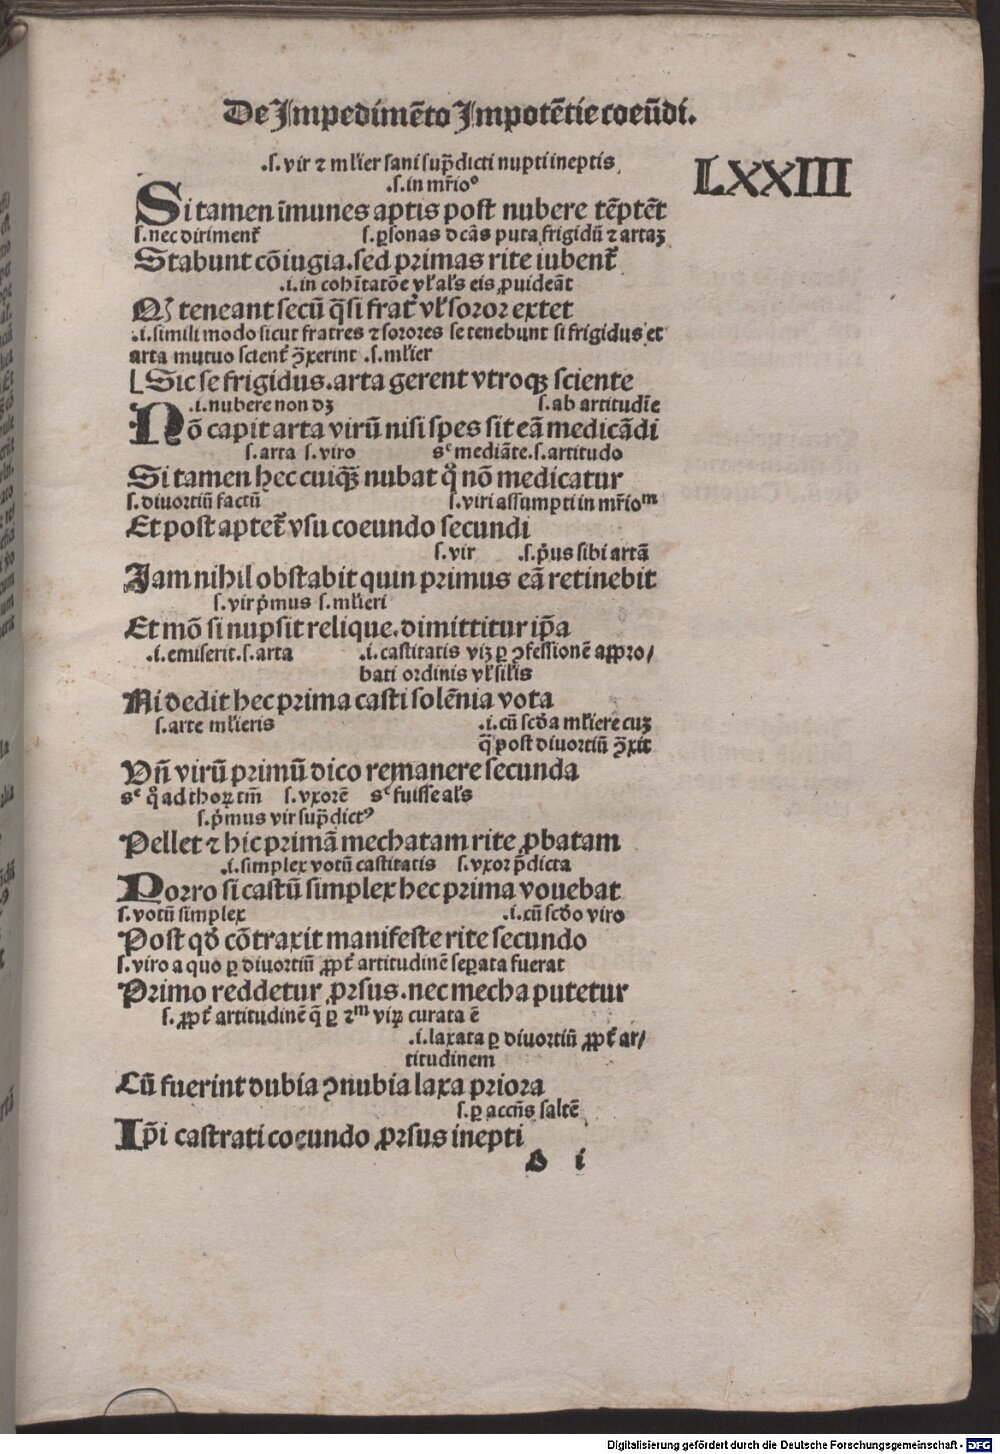 De Impedimēto Impotētie coeūdi.
LXXIII
.s. vir ⁊ mľier sani sup̄dicti nupti ineptis
.s. in mr̄io⁹
Si tamen īmunes aptis post nubere tēptēt
s. nec diriment᷑ s. ꝑsonas dc̄as puta frigidū ⁊ artaꝫ
Stabunt cōiugia. sed primas rite iubent᷑
.i. in cohītatōe vľ aľs eis ꝓuideāt
teneant secū q̄si frat᷑ vľ soror extet
.i. simili modo sicut fratres ⁊ sorores se tenebunt si frigidus et
arta mutuo scient᷑ ꝯ̄xerint .s. mľier
Sic se frigidus. arta gerent vtroqꝫ sciente
.i. nubere non dꝫ s. ab artitudīe
Nō capit arta virū nisi spes sit eā medicādi
s. arta s. viro sᶜ mediāte. s. artitudo
Si tamen hec cuiqꝫ nubat q̊ nō medicatur
s. diuortiū factū s. viri assumpti in mr̄ioᵐ
Et post aptet᷑ vsu coeundo secundi
s. vir .s. p̄us sibi artā
Iam nihil obstabit quin primus eā retinebit
s. vir p̄mus s. mľieri
Et mō si nupsit relique. dimittitur ip̄a
.i. emiserit. s. arta .i. castitatis viꝫ ꝑ ꝯfessionē appro/
bati ordinis vľ siľis
Ni dedit hec prima casti solēnia vota
s. arte mľieris .i. cū scďa mľiere cuꝫ
q̄ post diuortiū ꝯ̄xit
Vn̄ virū primū dico remanere secunda
sᶜ q̊ ad thorꝝ tm̄ s. vxorē sᶜ fuisse aľs
s. p̄mus vir sup̄dictꝰ
Pellet ⁊ hic primā mechatam rite ꝓbatam
.i. simplex votū castitatis s. vxor p̄dicta
Porro si castū simplex hec prima vouebat
s. votū simplex .i. cū scďo viro
Post qď cōtraxit manifeste rite secundo
s. viro a quo ꝑ diuortiū ꝓpt᷑ artitudinē seꝑata fuerat
Primo reddetur ꝓrsus. nec mecha putetur
s. ꝓpt᷑ artitudinē q̄ ꝑ ⁊ᵐ viꝝ curata ē
.i. laxata ꝑ diuortiū ꝓpt᷑ ar/
titudinem
Cū fuerint dubia ꝯnubia laxa priora
s. ꝑ accn̄s saltē
Ip̄i castrati coeundo ꝓrsus inepti
i
Digitalisierung gefördert durch die Deutsche Forschungsgemeinschaft - DFG